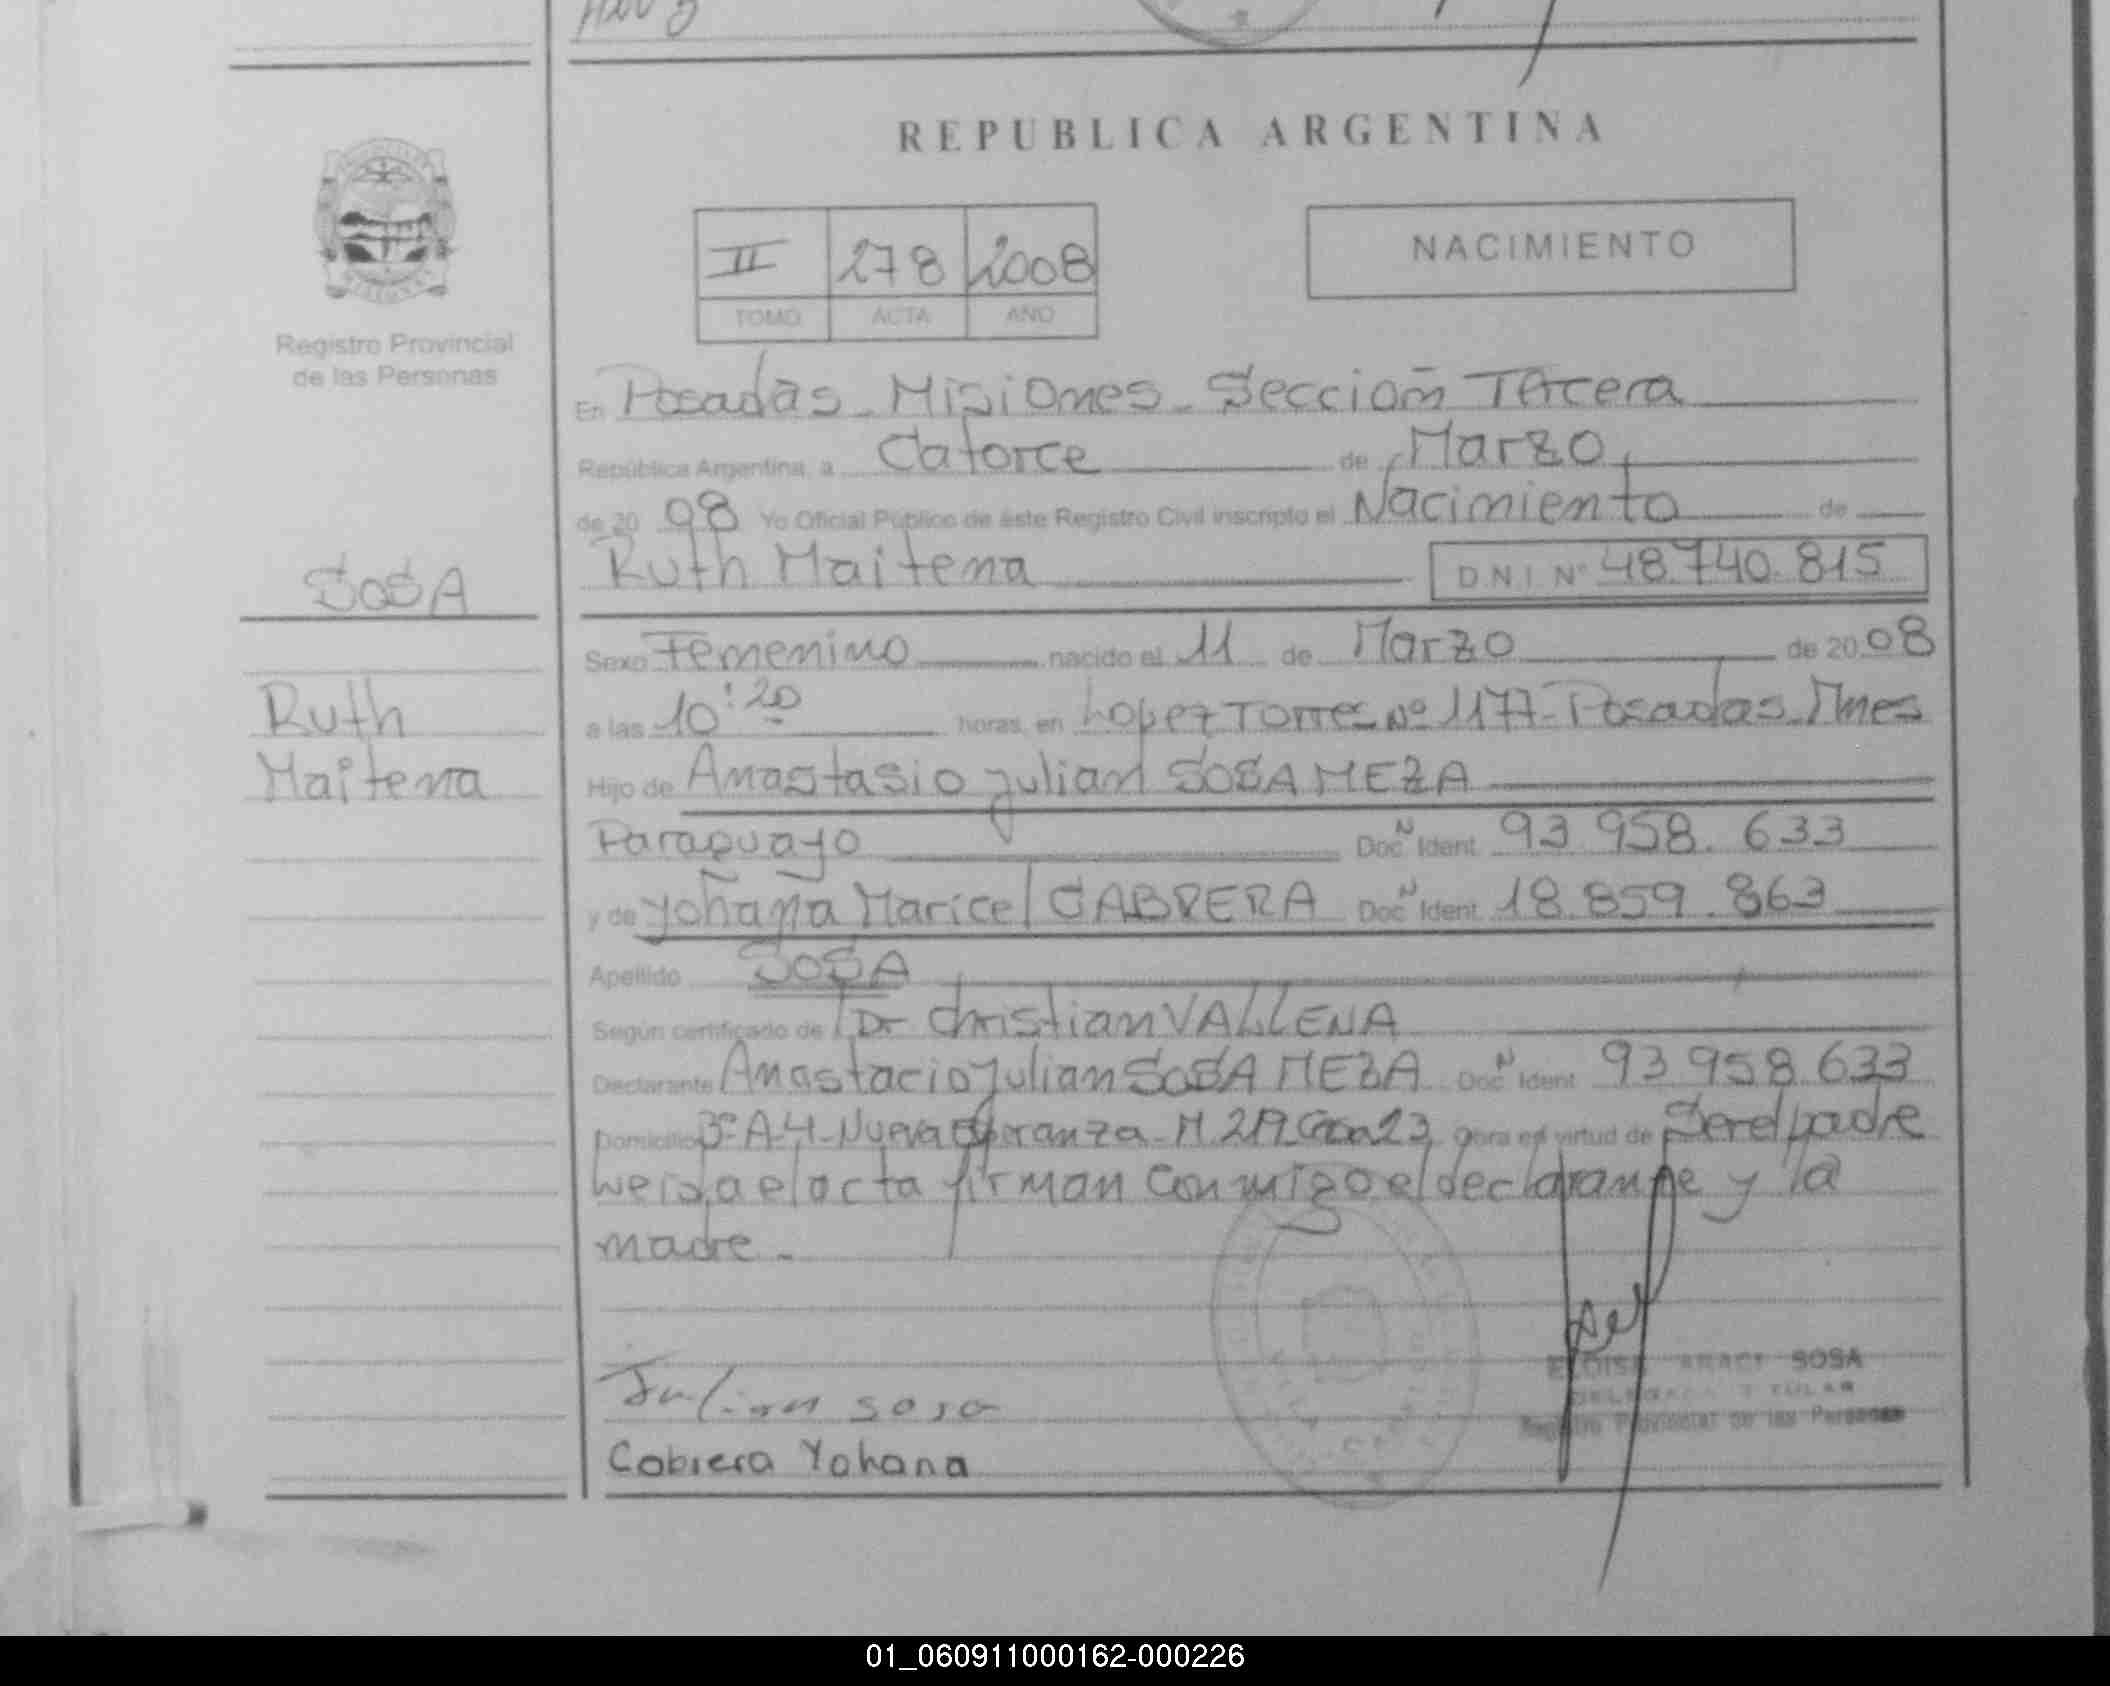 REPUBLICA ARGENTINA
II 278 2008
TOMO ACTA AÑO
NACIMIENTO
Registro Provincial
de las Personas
SOSA
Ruth
Maitena
En Posadas - Misiones - Sección Tercera
República Argentina, a Catorce de Marzo
de 20 08 Yo Oficial Público de éste Registro Civil inscripto el Nacimiento de
Ruth Maitena DNI Nº 48.740.815
Sexo Femenino nacido el 11 de Marzo de 20 08
a las 10:20 horas, en Lopez Torres Nº 1177 - Posadas - Mnes
Hijo de Anastasio Julian SOSA MEZA
Paraguayo Doc N Ident. 93.958.633
y de Yohana Maricel CABRERA Doc N Ident. 18.859.863
Apellido SOSA
Según certificado de Dr Christian VALLENA
Declarante Anastacio Julian SOSA MEZA Doc N Ident. 93.958.633
Domicilio A-4 - Nueva Esperanza - M. 23 obra en virtud de Ser el padre
el acta firman conmigo el declarante y la
madre -
Julian sosa
Cabrera Yohana
SOSA
Registro Provincial de las Personas
01_060911000162-000226